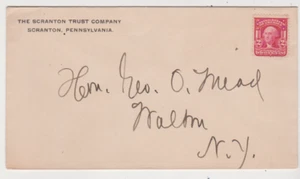 THE SCRANTON TRUST COMPANY
SCRANTON, PENNSYLVANIA.
Hon. Geo. O. Mead
Walton
N.Y.